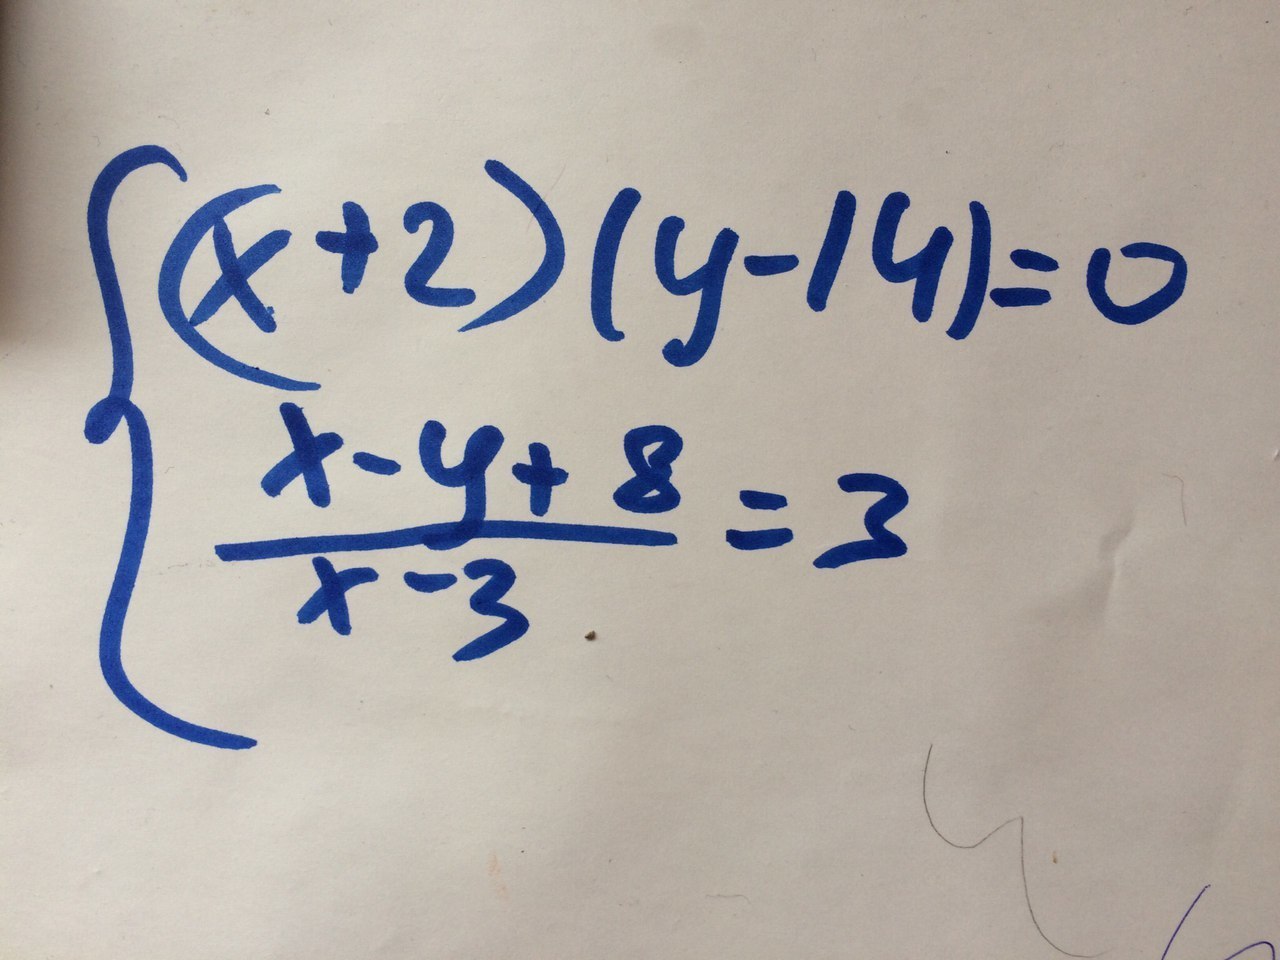 (x+2)(y-14)=0
x-y+8
x-3
=3